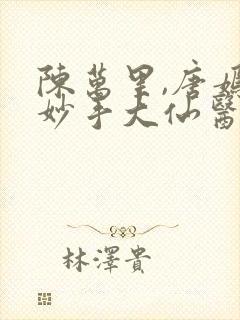 陳萬里,唐嫣
妙手大仙醫
林澤貴